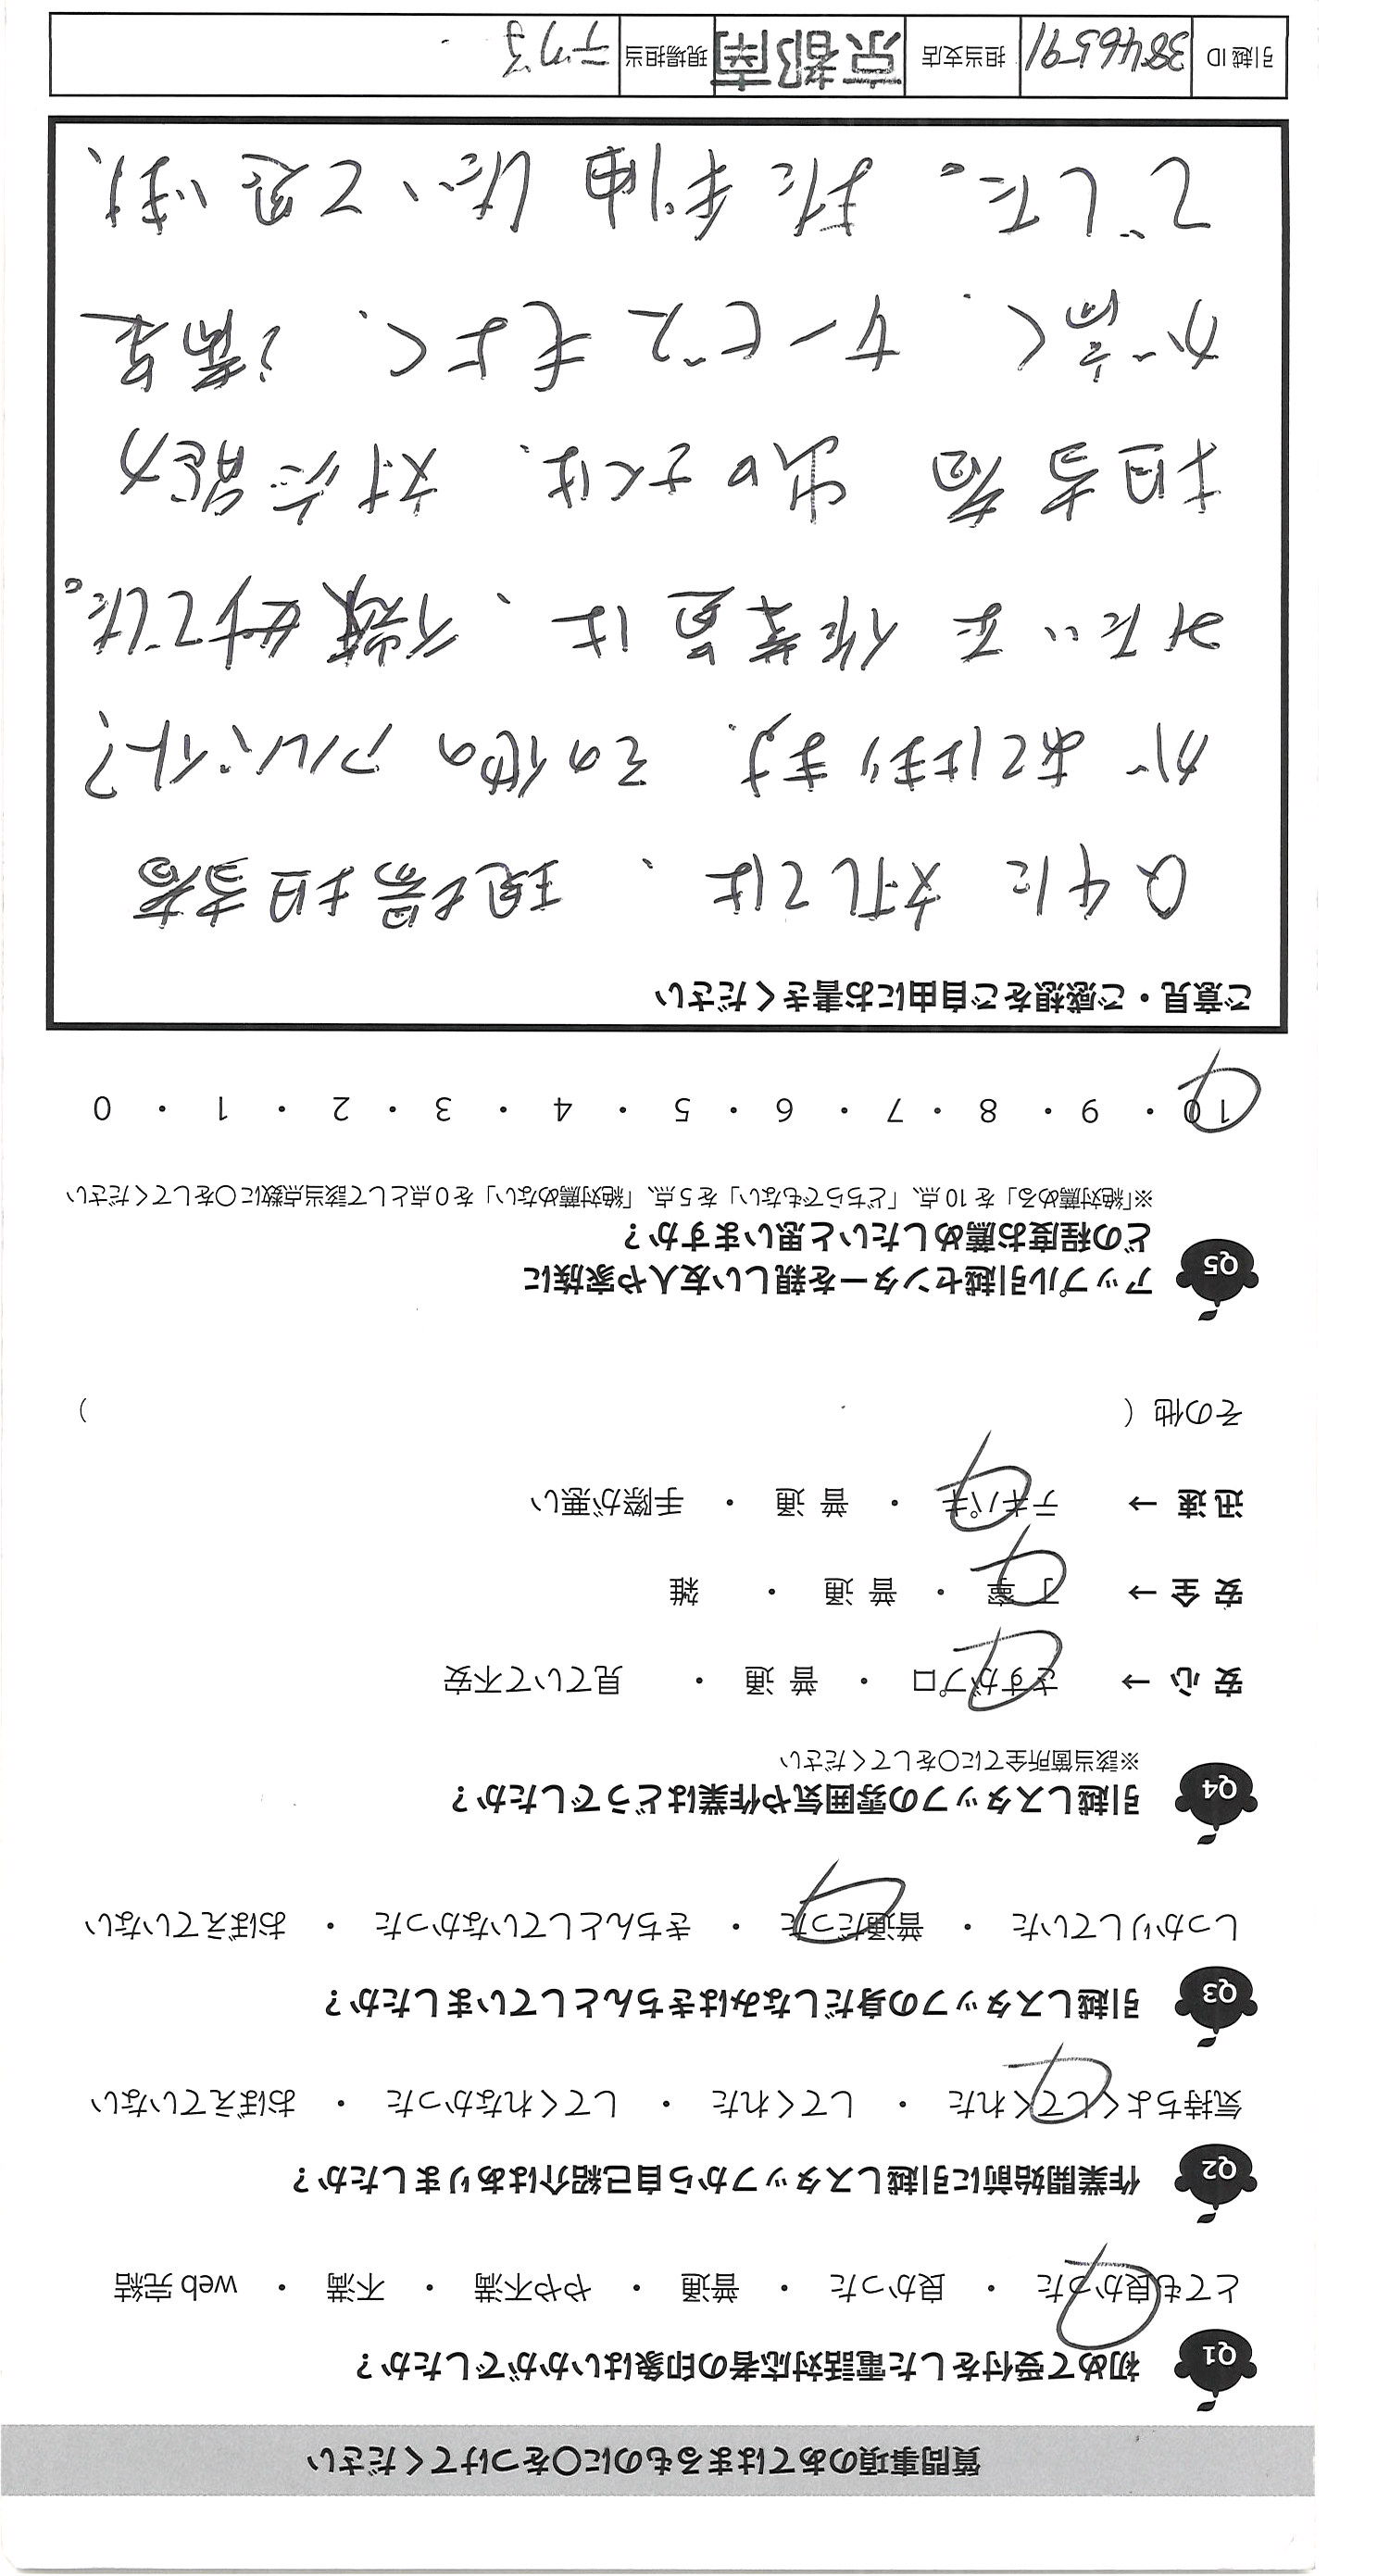 質問事項のあてはまるものに○をつけてください
Q1 初めて受付をした電話対応者の印象はいかがでしたか？
とても良かった ・ 良かった ・ 普通 ・ やや不満 ・ 不満 ・ web 完結
Q2 作業開始前に引越しスタッフから自己紹介はありましたか？
気持ちよくしてくれた ・ してくれた ・ してくれなかった ・ おぼえていない
Q3 引越しスタッフの身だしなみはきちんとしていましたか？
しっかりしていた ・ 普通だった ・ きちんとしていなかった ・ おぼえていない
Q4 引越しスタッフの雰囲気や作業はどうでしたか？
※該当箇所全てに○をしてください
安 心 → さすがプロ ・ 普 通 ・ 見ていて不安
安 全 → 丁 寧 ・ 普 通 ・ 雑
迅 速 → テキパキ ・ 普 通 ・ 手際が悪い
その他（ ）
Q5 アップル引越センターを親しい友人や家族に
どの程度お薦めしたいと思いますか？
※「絶対薦める」を 10 点、「どちらでもない」を 5 点、「絶対薦めない」を 0 点として該当点数に○をしてください
10 ・ 9 ・ 8 ・ 7 ・ 6 ・ 5 ・ 4 ・ 3 ・ 2 ・ 1 ・ 0
ご意見・ご感想をご自由にお書きください
Q4に対しては、現場担当者
があてはまります。その他のアルバイト？
みたいな作業員は、微妙でした。
担当者 出口さんは、対応能力
が高く、サービスもよく、満足
でした。また利用したいて思います、
引越 ID 3846591 担当支店 京都南 現場担当